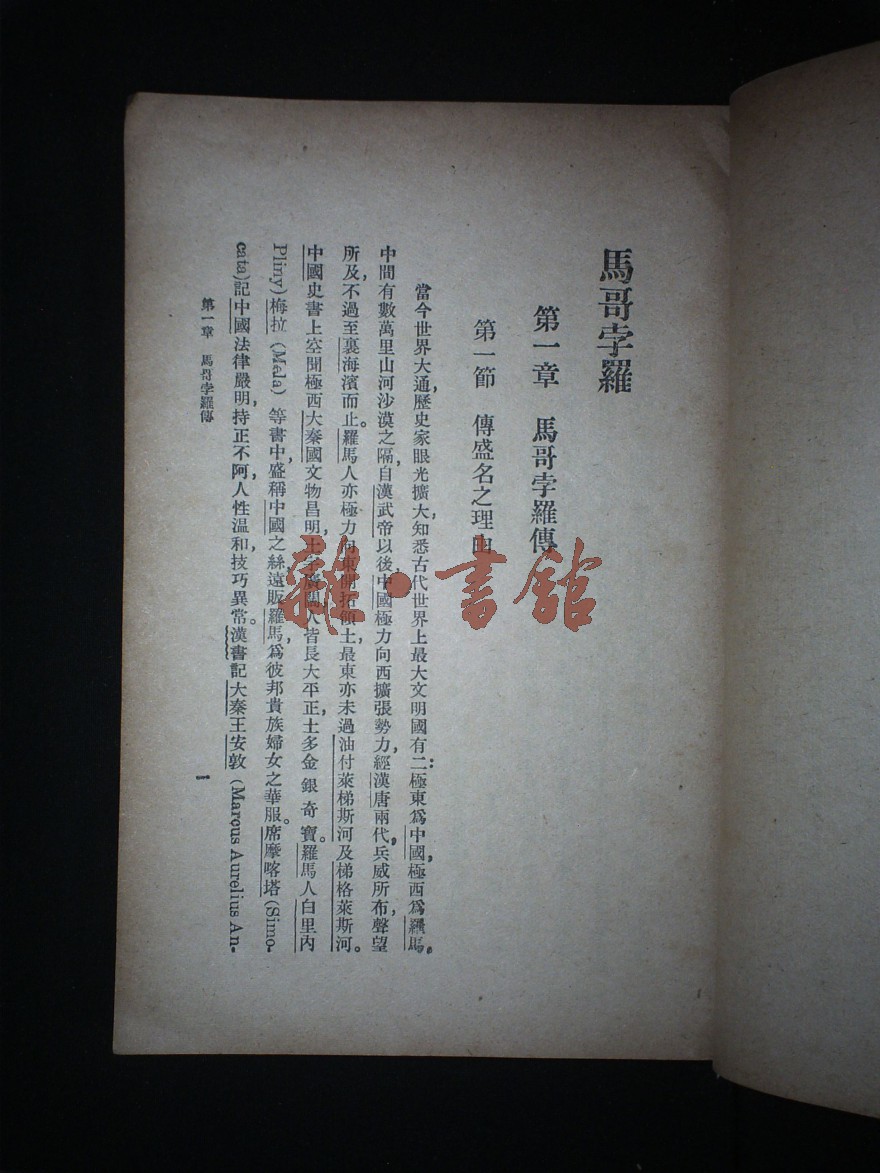 馬哥孛羅
第一章　馬哥孛羅傳
第一節　傳盛名之理由
當今世界大通，歷史家眼光擴大，知悉古代世界上最大文明國有二：極東爲中國，極西爲羅馬。
中間有數萬里山河沙漠之隔，自漢武帝以後，中國極力向西擴張勢力，經漢唐兩代，兵威所布，聲望
所及，不過至裏海濱而止。羅馬人亦極力向東開拓領土，最東亦未過油付萊梯斯河及梯格萊斯河。
中國史書上空聞極西大秦國文物昌明，土宇廣闊，人皆長大平正，士多金銀奇寶。羅馬人白里內
Pliny)梅拉 (Mela) 等書中，盛稱中國之絲，遠販羅馬，爲彼邦貴族婦女之華服。席摩喀塔(Simo-
cata)記中國法律嚴明，持正不阿，人性溫和，技巧異常。漢書記大秦王安敦 (Marcus Aurelius An-
第一章　馬哥孛羅傳
一
雜·書館